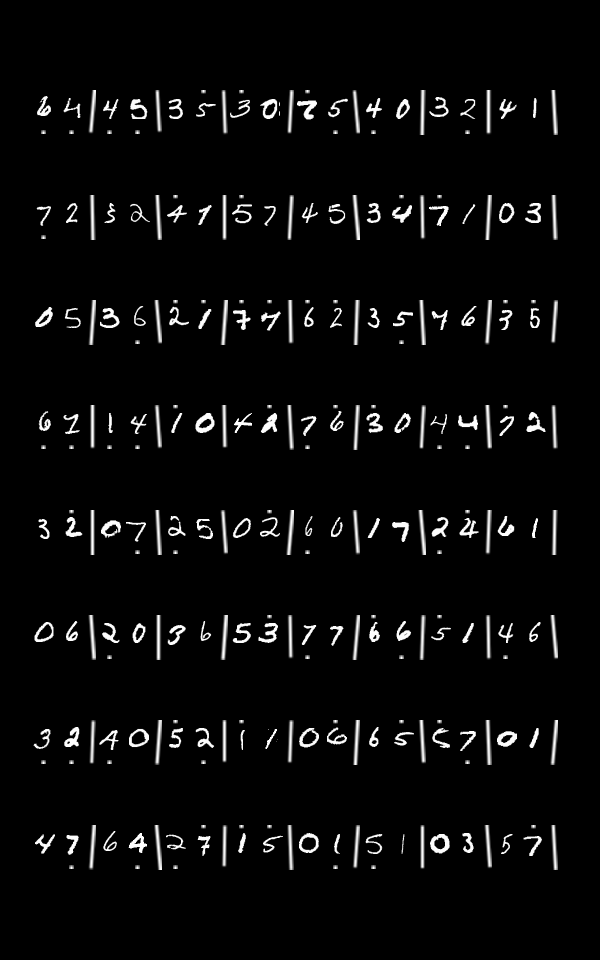 6 4 | 4 5 | 3 5 | 3 0 | 7 5 | 4 0 | 3 2 | 4 1 |
7 2 | 3 2 | 4 1 | 5 7 | 4 5 | 3 4 | 7 1 | 0 3 |
0 5 | 3 6 | 2 1 | 7 7 | 6 2 | 3 5 | 4 6 | 3 5 |
6 1 | 1 4 | 1 0 | 4 2 | 7 6 | 3 0 | 4 4 | 7 2 |
3 2 | 0 7 | 2 5 | 0 2 | 6 0 | 1 7 | 2 4 | 6 1 |
0 6 | 2 0 | 3 6 | 5 3 | 7 7 | 6 6 | 5 1 | 4 6 |
3 2 | 4 0 | 5 2 | 1 1 | 0 6 | 6 5 | 5 7 | 0 1 |
4 7 | 6 4 | 2 7 | 1 5 | 0 1 | 5 1 | 0 3 | 5 7 |